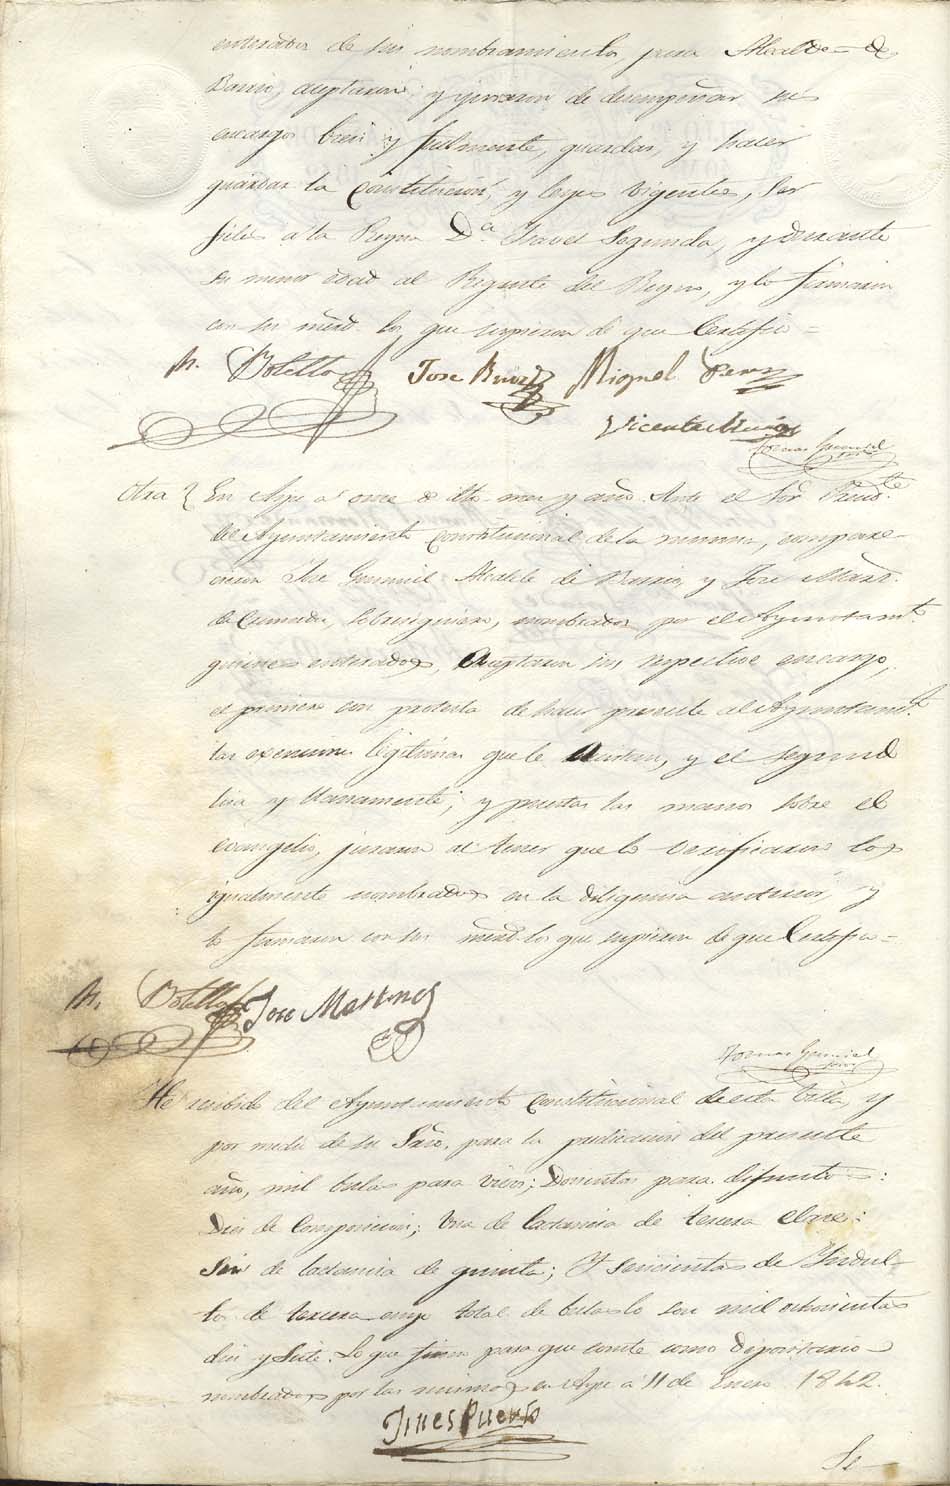 enterados de sus nombramientos para Alcaldes de
Barrio, aceptaron y juraron de desempeñar sus
encargos bien y fielmente, guardar, y hacer
guardar la Constitución, y leyes vigentes, ser
fieles a la Reyna D.ª Isavel Segunda, y durante
su menor edad al Regente del Reyno, y lo firmaron
con su merd. los que supieron de que Certifico =
M. Botella Jose Ruiz Miguel Perez
Vicente Muñoz
Tomas Gumiel
Otra } En Aspe a once de dho. mes y año. Ante el Sor. Presid.te
del Ayuntamiento Constitucional de la misma, compare-
cieron Jose Gumiel Alcalde de Barrio, y Jose Martz.
de Cremades, Sobreguiero, nombrados por el Ayuntam.to
quienes enterados, Aceptaron sus respectivos encargos,
el primero con protesta de hacer presente al Ayuntam.to
las exenciones legitimas que le asisten, y el segundo
lisa y llanamente; y puestas las manos sobre el
evangelio, juraron al tenor que lo verificaron los
igualmente nombrados en la diligencia anterior, y
lo firmaron con su merd. los que supieron de que Certifico =
M. Botella Jose Martinez
Tomas Gumiel
He recibido del Ayuntamiento Constitucional de esta Villa, y
por medio de su Srio. para la predicacion del presente
año, mil bulas para vivos; Doscientos para difuntos:
Dies de Composicion; Una de lactancia de tercera clase:
Seis de lactancia de quinta; Y Seiscientas de Yndul-
tos de tercera cuyo total de bulas lo son mil ochocientas
dies y Siete. Lo que firmo para que conste como Depositario
nombrado por los mismos en Aspe a 11 de Enero 1842.
Gines Puerto
Se